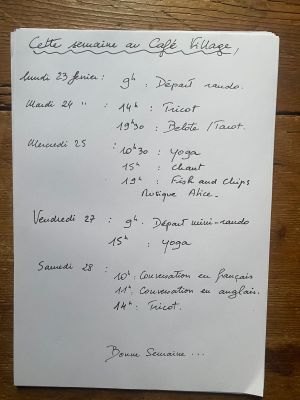 Cette semaine au Café Village,
lundi 23 février : 9h : Départ rando.
Mardi 24 " : 14h : Tricot
19h30 : Belote / Tarot.
Mercredi 25 : 10h30 : Yoga
15h : Chant
19h : Fish and Chips
Musique Alice.
Vendredi 27 : 9h : Départ mini-rando
15h : Yoga
Samedi 28 : 10h : Conversation en français
11h : Conversation en anglais.
14h : Tricot.
Bonne Semaine ...